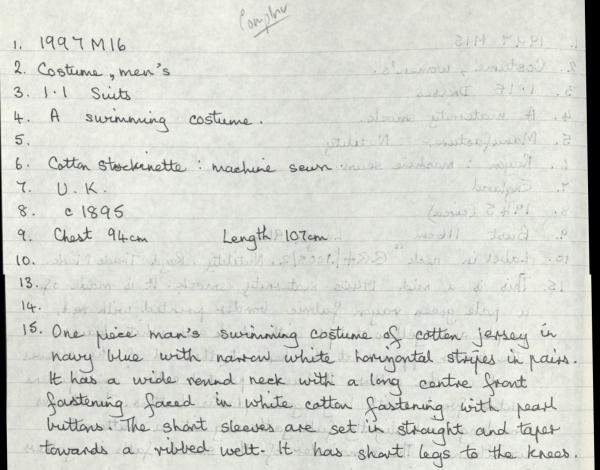 1. 1997 M16
2. Costume, men's
3. 1.1 Suits
4. A swimming costume.
5.
6. Cotton stockinette : machine sewn.
7. U.K.
8. c 1895
9. Chest 94cm Length 107cm
10.
13.
14.
15. One piece man's swimming costume of cotton jersey in
navy blue with narrow white horizontal stripes in pairs.
It has a wide round neck with a long centre front
fastening faced in white cotton fastening with pearl
buttons. The short sleeves are set in straight and taper
towards a ribbed welt. It has short legs to the knees.